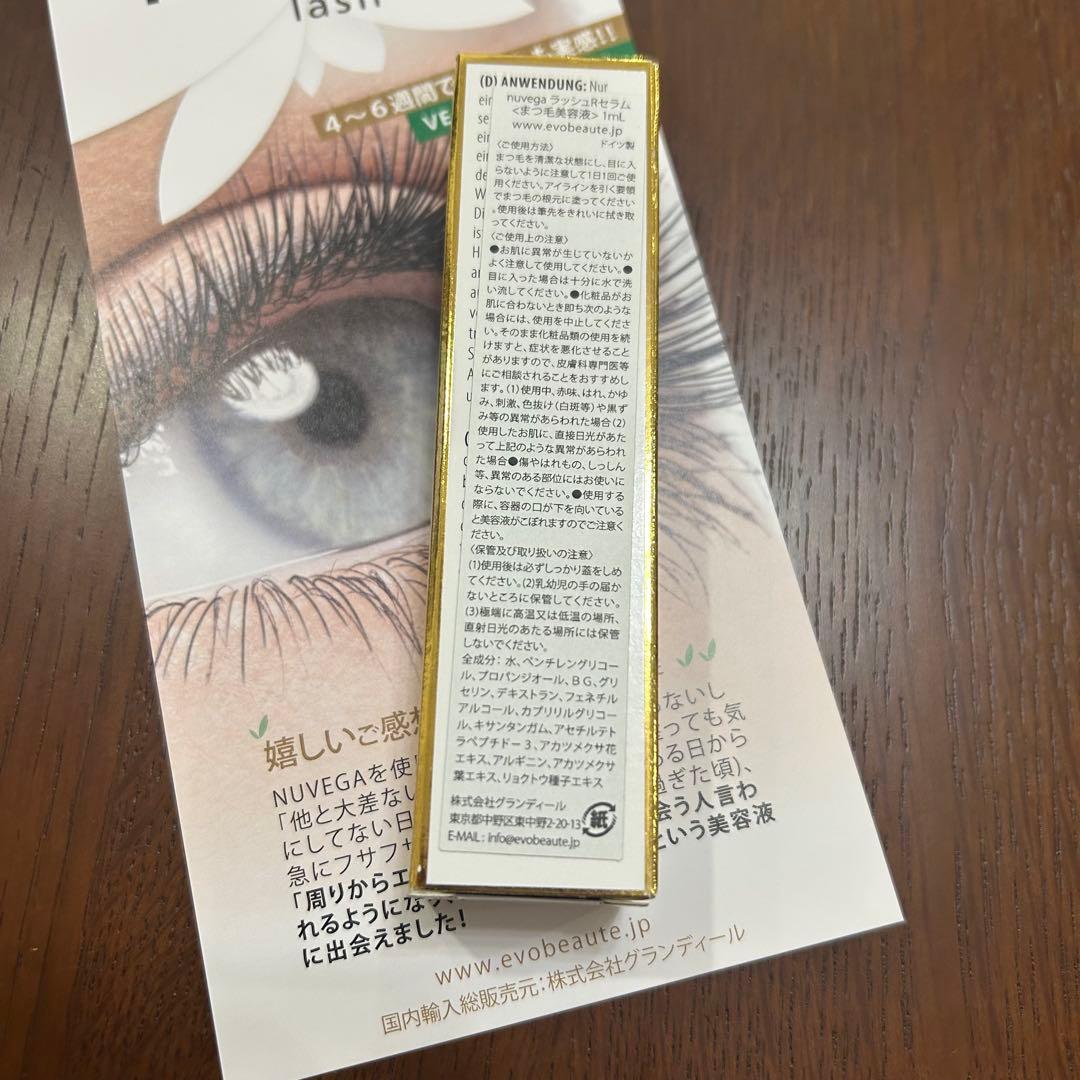 lash
4～6週間で
実感!!
VE
(D) ANWENDUNG: Nur
nuvega ラッシュRセラム
<まつ毛美容液> 1mL
www.evobeaute.jp
ドイツ製
〈ご使用方法〉
まつ毛を清潔な状態にし、目に入
らないように注意して1日1回ご使
用ください。アイラインを引く要領
でまつ毛の根元に塗ってください
。使用後は筆先をきれいに拭き取
ってください。
〈ご使用上の注意〉
●お肌に異常が生じていないか
よく注意して使用してください。●
目に入った場合は十分に水で洗
い流してください。●化粧品がお
肌に合わないとき即ち次のような
場合には、使用を中止してくださ
い。そのまま化粧品類の使用を続
けますと、症状を悪化させること
がありますので、皮膚科専門医等
にご相談されることをおすすめし
ます。(1)使用中、赤味、はれ、かゆ
み、刺激、色抜け(白斑等)や黒ず
み等の異常があらわれた場合(2)
使用したお肌に、直接日光があた
って上記のような異常があらわれ
た場合●傷やはれもの、しっしん
等、異常のある部位にはお使いに
ならないでください。●使用する
際に、容器の口が下を向いている
と美容液がこぼれますのでご注意く
ださい。
〈保管及び取り扱いの注意〉
(1)使用後は必ずしっかり蓋をしめ
てください。(2)乳幼児の手の届か
ないところに保管してください。
(3)極端に高温又は低温の場所、
直射日光のあたる場所には保管
しないでください。
全成分：水、ペンチレングリコー
ル、プロパンジオール、ＢＧ、グリ
セリン、デキストラン、フェネチル
アルコール、カプリリルグリコー
ル、キサンタンガム、アセチルテト
ラペプチドー３、アカツメクサ花
エキス、アルギニン、アカツメクサ
葉エキス、リョクトウ種子エキス
株式会社グランディール
東京都中野区東中野2-20-13
E-MAIL : info@evobeaute.jp
紙
嬉しいご感想
NUVEGAを使
「他と大差ない
にしてない日
急にフサフサ
「周りからエ
れるようになっ
に出会えました!
ないし
っても気
る日から
過ぎた頃)、
会う人言わ
という美容液
www.evobeaute.jp
国内輸入総販売元：株式会社グランディール